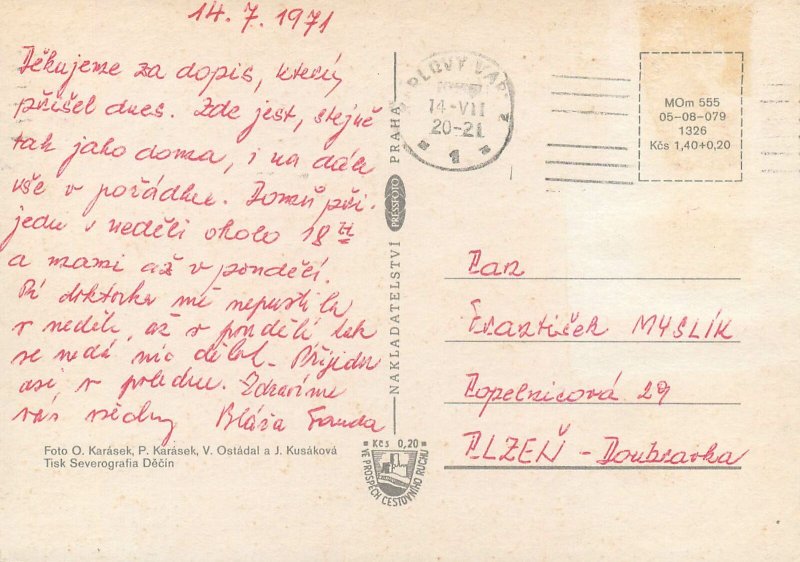 14. 7. 1971
Děkujeme za dopis, který
přišel dnes. Zde jest, stejně
tak jako doma, i na dále
vše v pořádku. Domů při-
jedu v neděli okolo 18 H
a mami až v pondělí.
Pí doktorka mě nepustila
v neděli, až v pondělí tak
se nedá nic dělat. Přijedu
asi v poledne. Zdravíme
vás všechny Bláža Franda
Foto O. Karásek, P. Karásek, V. Ostádal a J. Kusáková
Tisk Severografia Děčín
NAKLADATELSTVÍ PRESSFOTO PRAHA
Kčs 0,20
VE PROSPĚCH CESTOVNÍHO RUCHU
14-VII
20-21
1
MOm 555
05-08-079
1326
Kčs 1,40+0,20
Pan
František MYSLÍK
Popelnicová 29
PLZEŇ - Doubravka